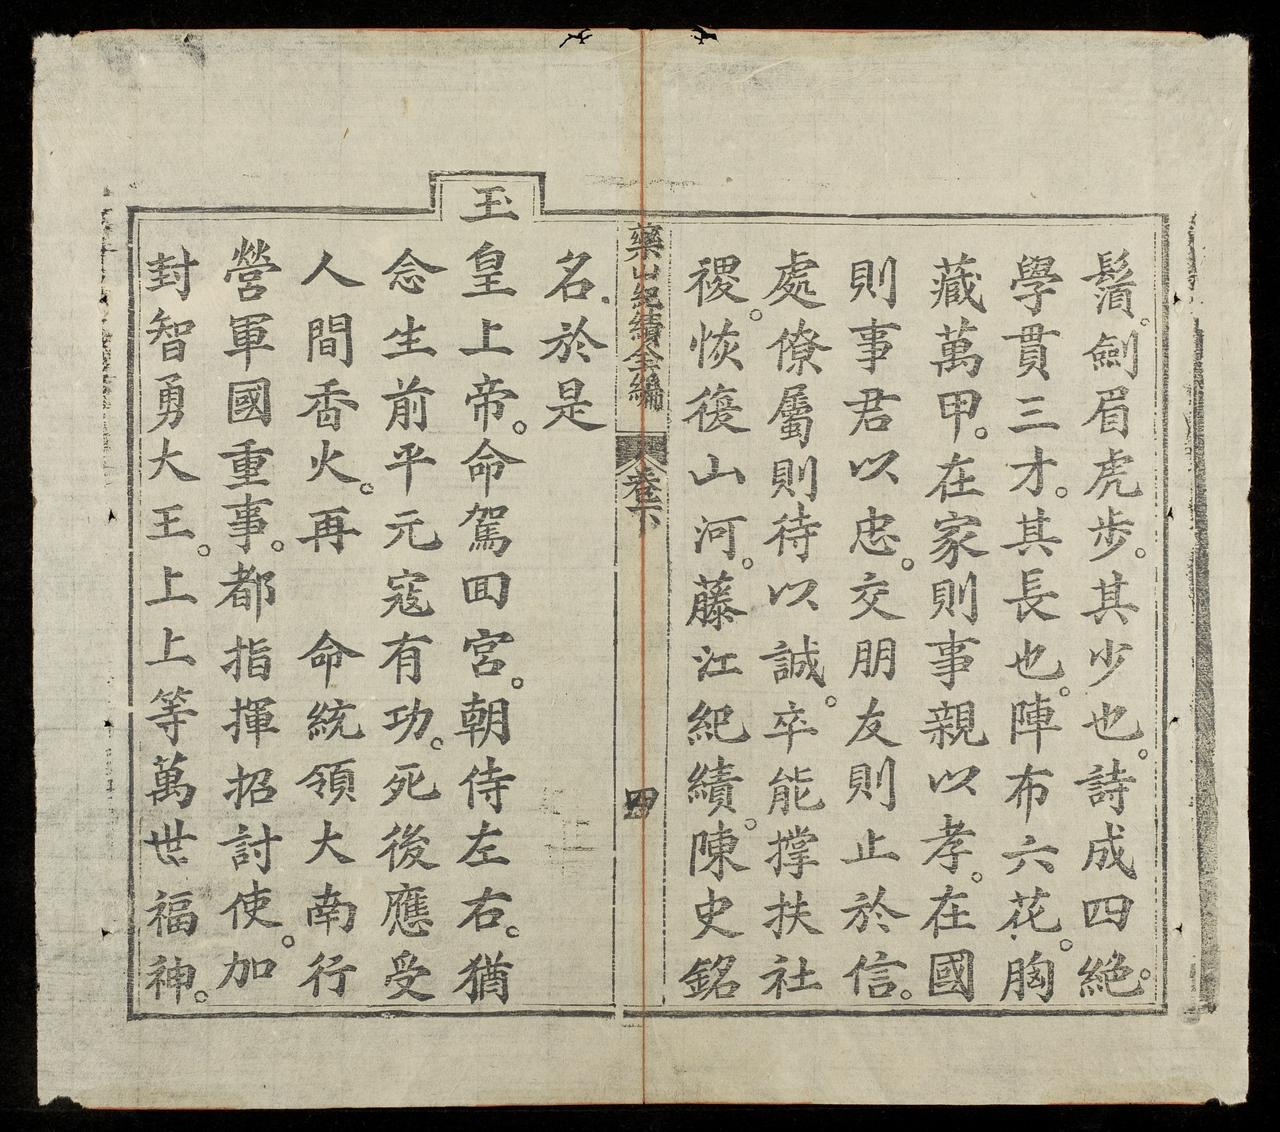 鬚。劍眉虎步。其少也。詩成四絶。
學貫三才。其長也。陣布六花。胸
藏萬甲。在家則事親以孝。在國
則事君以忠。交朋友則止於信。
處僚屬則待以誠。卒能撑扶社
稷。恢復山河。藤江紀績。陳史銘
藥山紀績全編 卷下 四
名。於是
玉皇上帝。命駕囬宮。朝侍左右。猶
念生前平元寇有功。死後應受
人間香火。再 命統領大南行
營軍國重事。都指揮招討使。加
封智勇大王。上上等萬世福神。